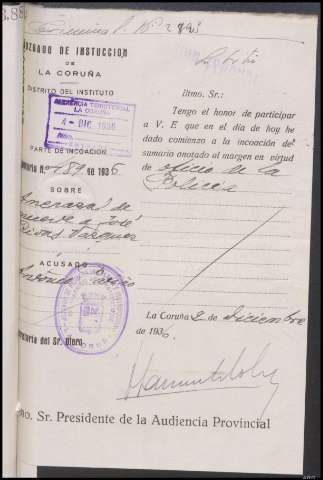 JUZGADO DE INSTRUCCION
DE
LA CORUÑA
DISTRITO DEL INSTITUTO
AUDIENCIA TERRITORIAL
LA CORUÑA
4 - DIC. 1936
PARTE DE INCOACIÓN
Sumario N.º 289 de 1936
SOBRE
Amenazas de
muerte a José
Rivas Vázquez
ACUSADO
Antonio
Secretaría del Sr. Otero
Iltmo. Sr.:
Tengo el honor de participar
a V. E que en el día de hoy he
dado comienzo a la incoación de
sumario anotado al margen en virtud
de oficio de la
Policía
La Coruña 2 de Diciembre
de 1936.
Iltmo. Sr. Presidente de la Audiencia Provincial